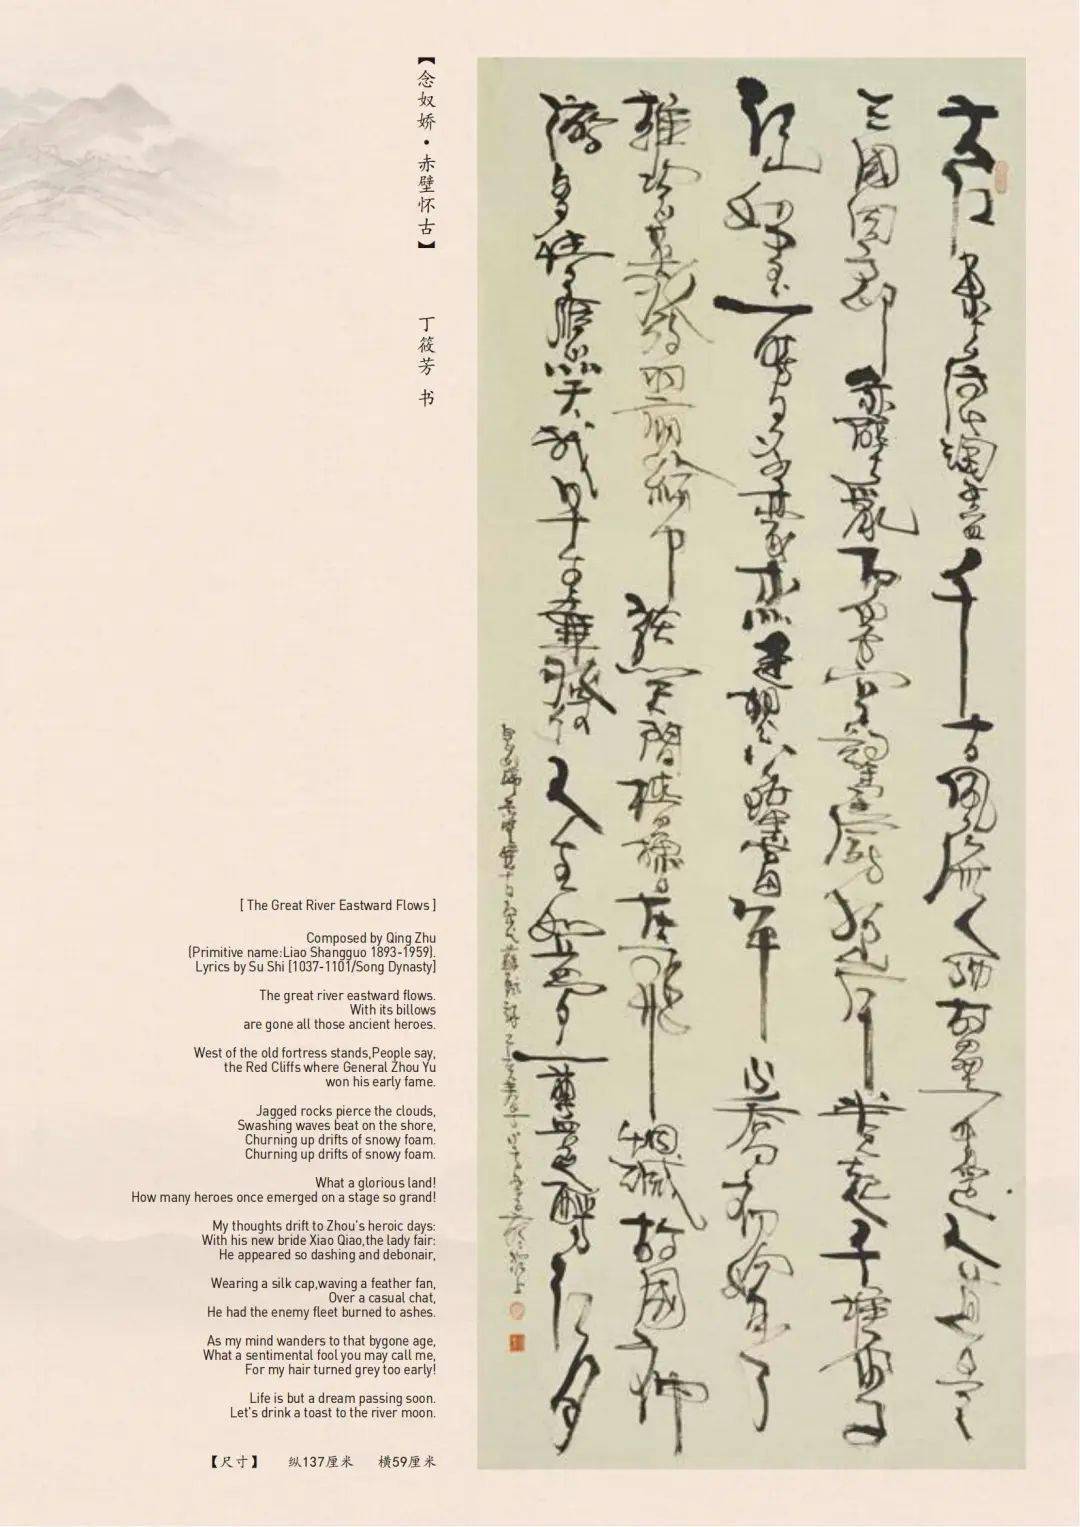 【念奴娇·赤壁怀古】
丁筱芳 书
大江東去浪淘盡千古風流人物故壘西邊人道是
三國周郎赤壁亂石驚濤岸卷起千堆雪
江山如畫一時多少豪傑遙想公瑾當年小喬初嫁了
雄姿英發羽扇綸巾談笑間檣櫓灰飛煙滅故國神
遊多情應笑我早生華髮人生如夢一尊還酹江月
[ The Great River Eastward Flows ]
Composed by Qing Zhu
(Primitive name:Liao Shangguo 1893-1959).
Lyrics by Su Shi [1037-1101/Song Dynasty]
The great river eastward flows.
With its billows
are gone all those ancient heroes.
West of the old fortress stands,People say,
the Red Cliffs where General Zhou Yu
won his early fame.
Jagged rocks pierce the clouds,
Swashing waves beat on the shore,
Churning up drifts of snowy foam.
Churning up drifts of snowy foam.
What a glorious land!
How many heroes once emerged on a stage so grand!
My thoughts drift to Zhou's heroic days:
With his new bride Xiao Qiao,the lady fair:
He appeared so dashing and debonair,
Wearing a silk cap,waving a feather fan,
Over a casual chat,
He had the enemy fleet burned to ashes.
As my mind wanders to that bygone age,
What a sentimental fool you may call me,
For my hair turned grey too early!
Life is but a dream passing soon.
Let's drink a toast to the river moon.
【尺寸】 纵137厘米 横59厘米